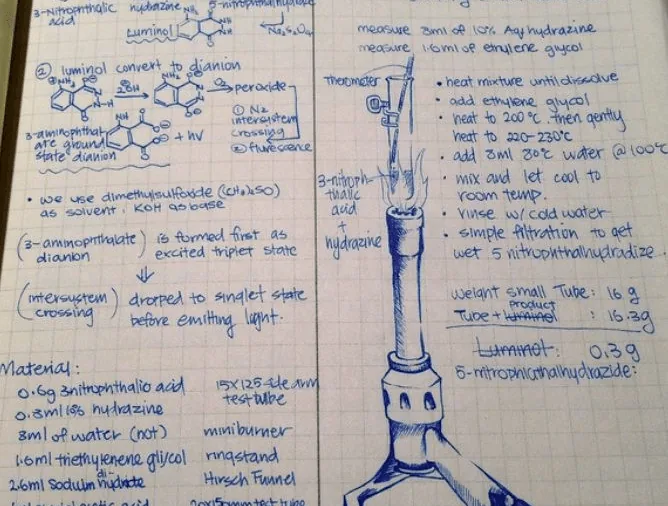 3-Nitrophthalic hydrazine
acid
Luminol
NH
NH
Na₂S₂O₄
② luminol convert to dianion
NH₂
2OH
O₂
peroxide
① N₂
intersystem
crossing
② flurescence
3-aminophthal
ate ground
state dianion
+ hν
• we use dimethylsulfoxide (CH₃)₂SO)
as solvent, KOH as base
(3-aminophthalate) is formed first as
dianion excited triplet state
⇓
(intersystem) dropped to singlet state
crossing before emitting light.
Material:
0.6g 3nitrophthalic acid
0.3ml 10% hydrazine
3ml of water (hot)
1.6ml triethylenene gli/col
di-
2.6ml Sodium hydride
15x125 side arm
test tube
miniburner
ringstand
Hirsch Funnel
20x150mm test tube
measure 3ml of 10% Aq. hydrazine
measure 1.6ml of ethylene glycol
thermometer
3-nitroph-
thalic
acid
+
hydrazine
• heat mixture until dissolve
• add ethylene glycol
• heat to 200°C then gently
heat to 220-230°C
• add 3ml 30°c water @ 100°C
• mix and let cool to
room temp.
• rinse w/ cold water
• simple filtration to get
wet 5 nitrophthalhydradize.
weight small Tube: 16 g
product
Tube + luminol : 16.3g
Luminol: 0.3g
5-nitrophicathalhydrazide: